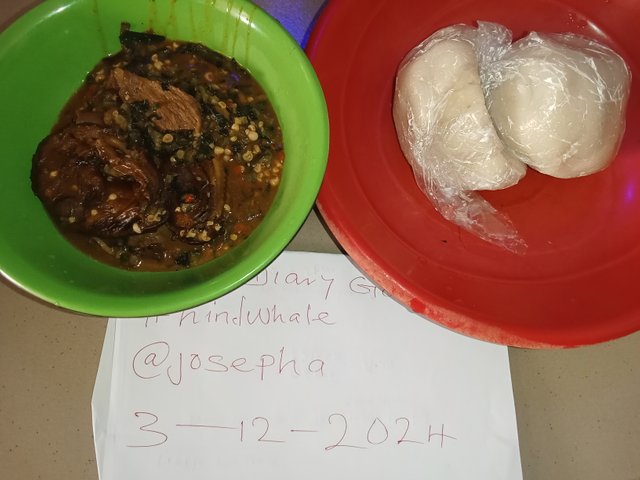 Diary
hindwhale
@josepha
3-12-2024